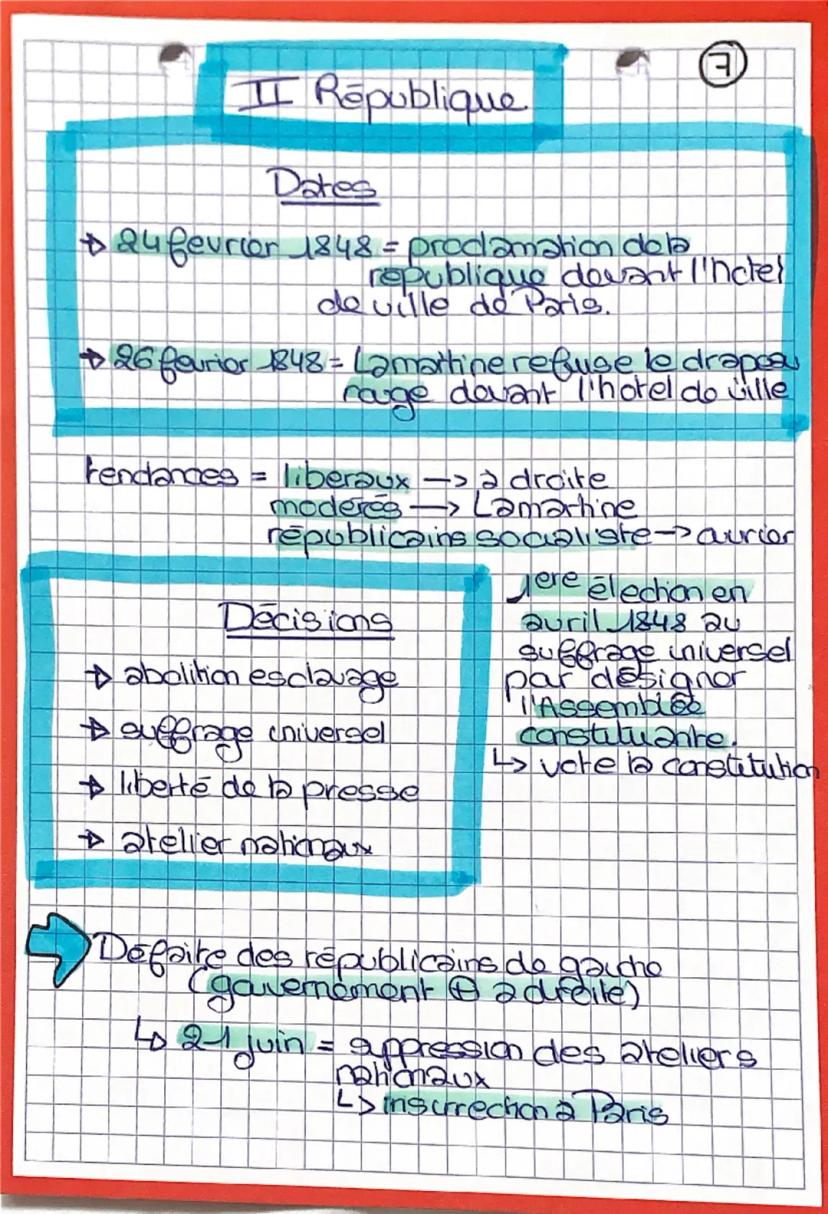 7
II République
Dates
→ 24 fevrier 1848 = proclamation de la
republique devant l'hotel
de ville de Paris.
→ 26 fevrier 1848 = Lamartine refuse le drapeau
rouge devant l'hotel de ville
tendances = liberaux → à droite
modérés → Lamartine
républicains socialiste → ouvrier
Décisions
→ abolition esclavage
→ suffrage universel
→ liberté de la presse
→ atelier nationaux
1ere élection en
avril 1848 au
suffrage universel
par désigner
l'Assemblée
constituante.
↳ vote la constitution
Défaite des républicains de gauche
(gouvernement ⊕ à droite)
↳ 21 juin = suppression des ateliers
nationaux
↳ insurrection à Paris